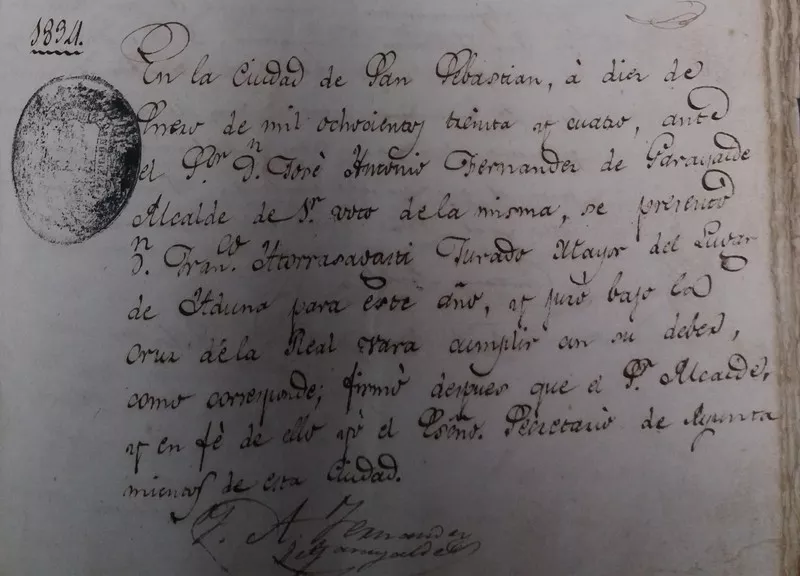 1834.
En la Ciudad de San Sebastian, à diez de
Enero de mil ochocientos treinta y cuatro, ante
el Sor. Dn. José Antonio Fernandez de Garayalde
Alcalde de 1er. voto de la misma, se presentó
Dn. Franco. Atorrasagasti Jurado Mayor del Lugar
de Aduna para este año, y juró bajo la
Cruz de la Real vara cumplir con su deber,
como corresponde; firmó despues que el Sr. Alcalde,
y en fè de ello yo el Esno. Secretario de Ayunta
mientos de esta Ciudad.
J. A. Fernandez
de Garayalde